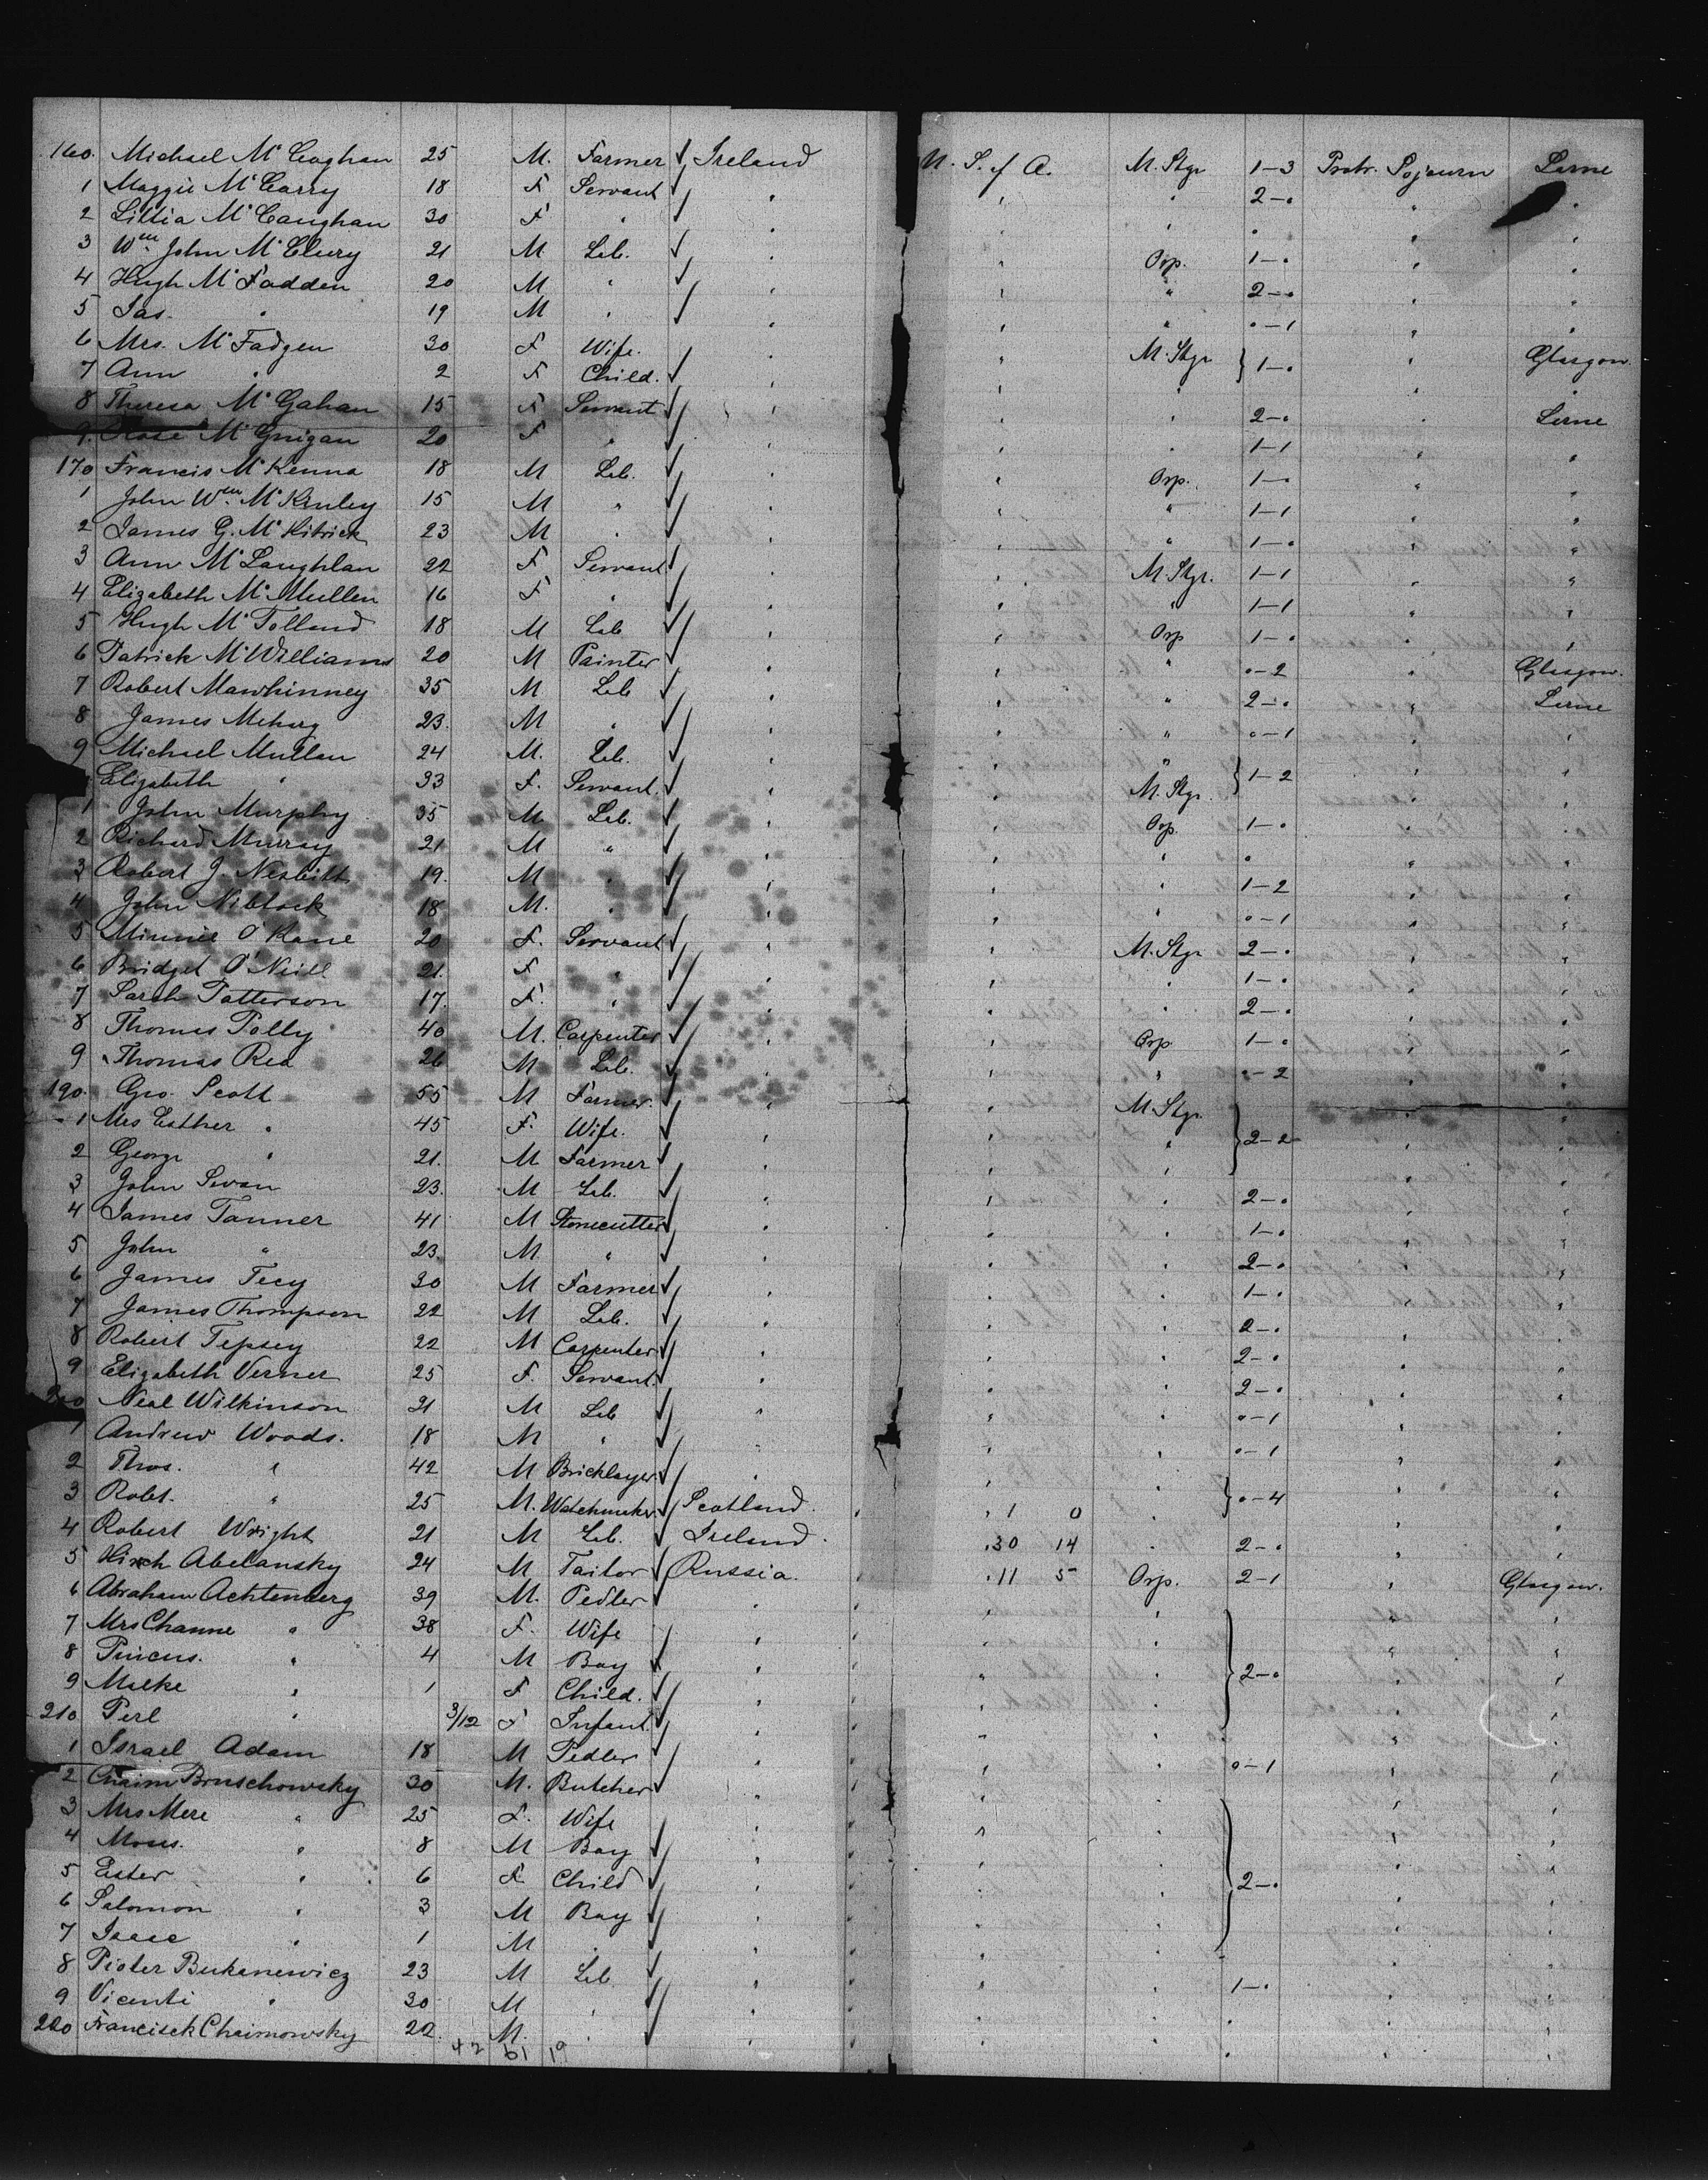 160. Michael McCoghan 25 M. Farmer ✓ Ireland U. S. of A. M. Stge 1-3 Protr. Sojourn Larne
1 Maggie McGarry 18 F Servant ✓ " " " 2-0 " "
2 Lillia McCaughan 30 F " ✓ " " " " " "
3 Wm John McClury 21 M Lab. ✓ " " Orp. 1-0 " "
4 Hugh McFadden 20 M " ✓ " " " 2-0 " "
5 Jas. " 19 M " ✓ " " " 0-1 " "
6 Mrs. McFadgen 30 F Wife. " " M. Stge } 1-0 " Glasgow.
7 Ann " 2 F Child. ✓ " " " "
8 Theresa McGahan 15 F Servant ✓ " " " 2-0 " Larne
9. Rose McGuigan 20 F " ✓ " " " 1-1 " "
170 Francis McKenna 18 M Lab. ✓ " " Orp. 1-0 " "
1 John Wm McKinley 15 M " ✓ " " " 1-1 " "
2 James G. McKitrick 23 M " ✓ " " " 1-0 " "
3 Ann McLaughlan 22 F Servant ✓ " " M. Stge. 1-1 " "
4 Elizabeth McMullen 16 F " ✓ " " " 1-1 " "
5 Hugh McTolland 18 M Lab ✓ " " Orp 1-0 " "
6 Patrick McWilliams 20 M Painter ✓ " " " 0-2 " Glasgow.
7 Robert Mawhinney 35 M Lab ✓ " " " 2-0 " Larne
8 James Meharg 23. M " ✓ " " " 0-1 " "
9 Michael Mullan 24 M. Lab. ✓ " " " } 1-2 " "
Elizabeth " 33 F. Servant. ✓ " " M. Stge. " "
1 John Murphy 35 M Lab. ✓ " " Orp. 1-0 " "
2 Richard Murray 21 M " ✓ " " " " " "
3 Robert J. Nesbitt 19. M " ✓ " " " 1-2 " "
4 John Niblock 18 M. " ✓ " " " 0-1 " "
5 Minnie O'Kane 20 F. Servant ✓ " " M. Stge 2-0 " "
6 Bridget O'Neill 21. F " ✓ " " " 1-0 " "
7 Sarah Patterson 17. F. " ✓ " " " 2-0 " "
8 Thomas Polly 40 M. Carpenter ✓ " " Orp 1-0 " "
9 Thomas Rea 26 M Lab. ✓ " " " 0-2 " "
190. Geo. Scott 55 M Farmer. ✓ " " M. Stge. } 2-2 " "
1 Mrs Esther " 45 F. Wife. ✓ " " " " "
2 George " 21. M Farmer ✓ " " " " "
3 John Swan 23. M Lab. ✓ " " " 2-0 " "
4 James Tanner 41 M Stonecutter ✓ " " " 1-0 " "
5 John " 23. M " ✓ " " " 2-0 " "
6 James Tecy 30 M Farmer ✓ " " " 1-0 " "
7 James Thompson 22 M Lab. ✓ " " " 2-0 " "
8 Robert Tepsey 22 M Carpenter ✓ " " " 2-0 " "
9 Elizabeth Verner 25 F. Servant. ✓ " " " 2-0 " "
200 Neal Wilkinson 21 M Lab ✓ " " " 0-1 " "
1 Andrew Woods. 18 M " ✓ " " " 0-1 " "
2 Thos. " 42 M Bricklayer. ✓ " " " } 0-4 " "
3 Robt. " 25 M. Watchmaker ✓ Scotland. " 1 0 " " "
4 Robert Wright 21 M Lab. ✓ Ireland. " 30 14 " 2-0 " "
5 Hirsch Abelansky 24 M Tailor ✓ Russia. " 11 5 Orp. 2-1 " Glasgow.
6 Abraham Achtenberg 39 M. Pedler ✓ " " " } 2-0 " "
7 Mrs Channe " 38 F. Wife " " " " "
8 Pincus. " 4 M Boy ✓ " " " " "
9 Malke " 1 F Child. ✓ " " " " "
210 Perl " 3/12 F Infant. ✓ " " " " "
1 Israel Adam 18 M Pedler ✓ " " " 0-1 " "
2 Chaim Bruschowsky 30 M. Butcher ✓ " " " } 2-0 " "
3 Mrs Mere " 25 F. Wife " " " " "
4 Moses. " 8 M Boy ✓ " " " " "
5 Ester " 6 F Child ✓ " " " " "
6 Salomon " 3 M Boy ✓ " " " " "
7 Isaac " 1 M " ✓ " " " " "
8 Pioter Bukanewicz 23 M Lab ✓ " " " 1-0 " "
9 Vicenti " 30 M " ✓ " " " " " "
220 Francisek Chaimowsky 22. M. " ✓ " " " " " "
42 61 19